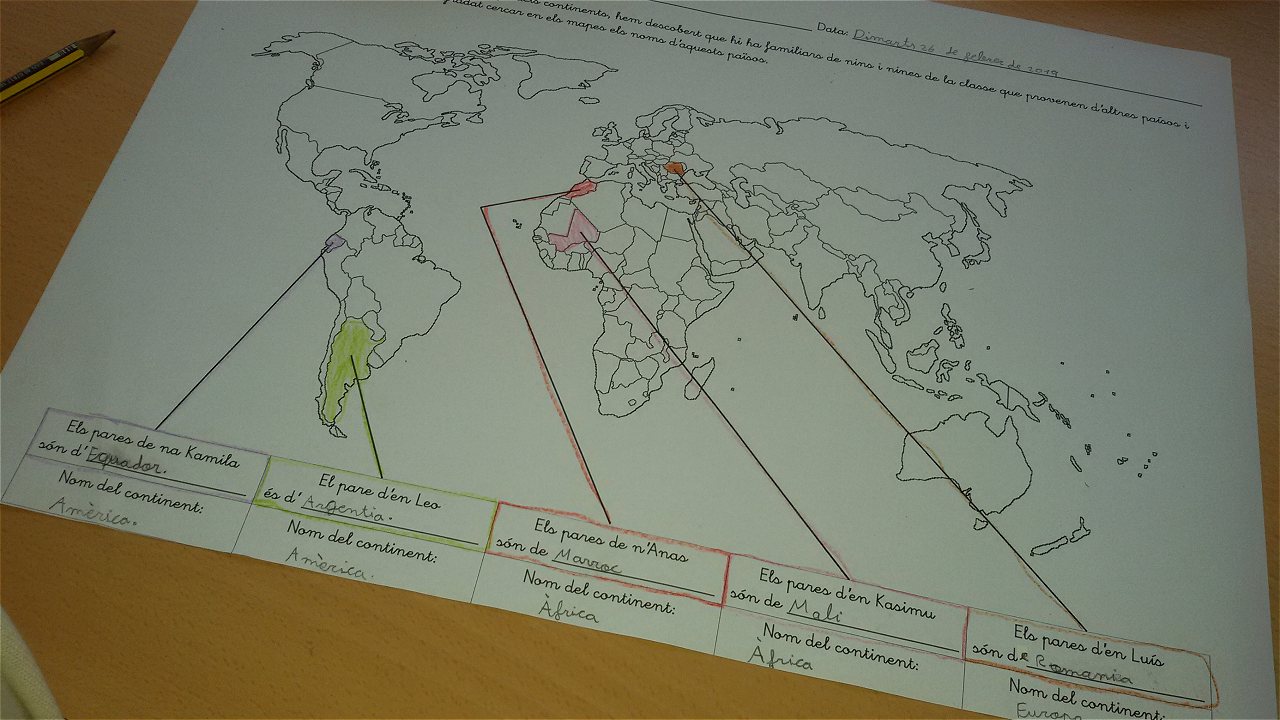 Data: Dimarts 26 de febrer de 2019
continents, hem descobert que hi ha familiars de nins i nines de la classe que provenen d'altres països i
cercar en els mapes els noms d'aquests països.
Els pares de na Kamila
són d'Equador.
Nom del continent:
Amèrica.
El pare d'en Leo
és d'Argentia.
Nom del continent:
Amèrica.
Els pares de n'Anas
són de Marroc
Nom del continent:
Àfrica
Els pares d'en Kasimu
són de Mali
Nom del continent:
Àfrica
Els pares d'en Luís
són de Romania
Nom del continent:
Europa